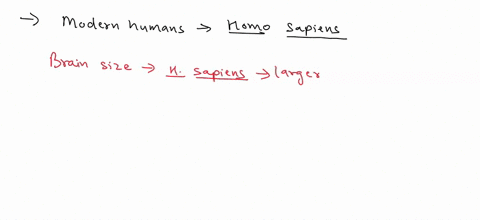 → Modern humans → Homo sapiens
Brain size → H. sapiens → larger